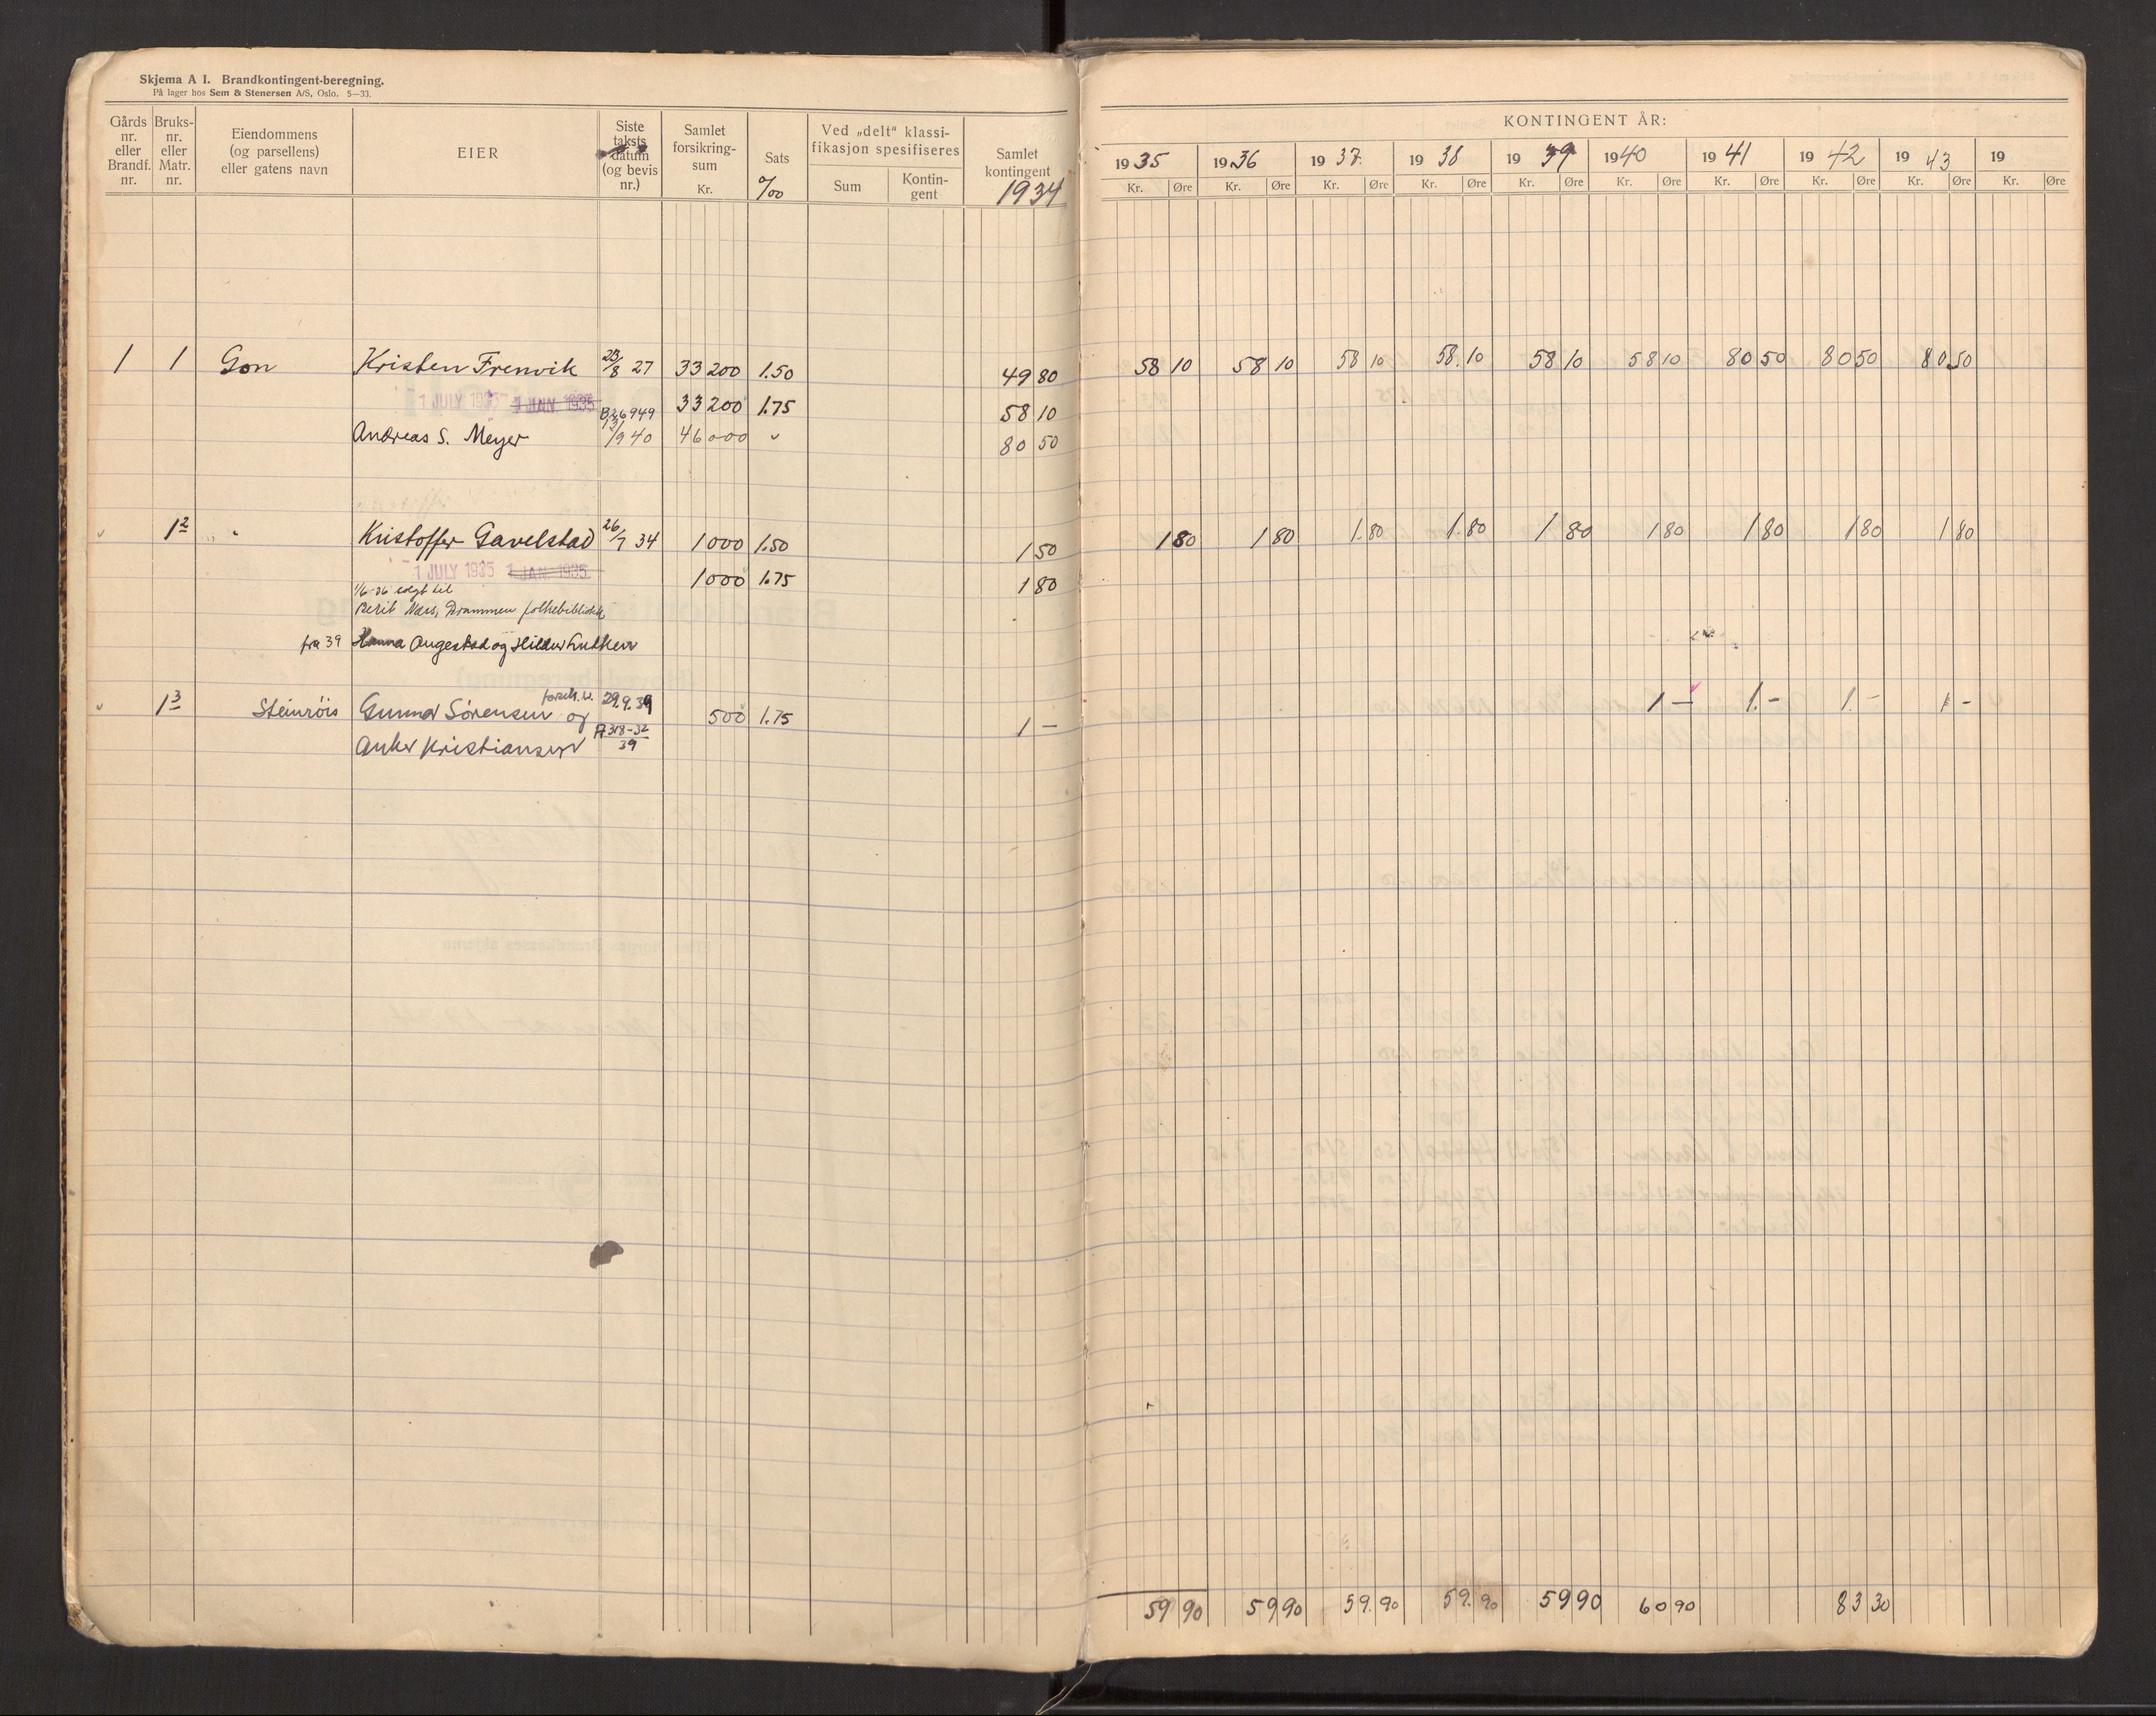 Skjema A I. Brandkontingent-beregning.
På lager hos Sem & Stenersen A/S, Oslo. 5—33.
Gårds nr. eller Brandf. nr.
Bruks- nr. eller Matr. nr.
Eiendommens (og parsellens) eller gatens navn
EIER
Siste taksts datum (og bevis nr.)
Samlet forsikring- sum Kr.
Sats ‰
Ved „delt" klassi- fikasjon spesifiseres
Sum
Kontin- gent
Samlet kontingent 1934
KONTINGENT ÅR:
1935 1936 1937. 1938 1939 1940 1941 1942 1943 19
Kr. Øre Kr. Øre Kr. Øre Kr. Øre Kr. Øre Kr. Øre Kr. Øre Kr. Øre Kr. Øre Kr. Øre
1 1 Gon Kristen Frenvik 28/8 27 33 200 1.50 49 80 58 10 58 10 58 10 58.10 58 10 58 10 80 50 80 50 80 50
1 JULY 1935 1 JAN. 1935 33 200 1.75 58 10
B26949
Andreas S. Meyer 13/9 40 46 000 " 80 50
" 1 2 " Kristoffer Gavelstad 26/7 34 1000 1.50 1 50 1 80 1 80 1.80 1.80 1 80 1 80 1 80 1 80 1 80
1 JULY 1935 1 JAN. 1935 1000 1.75 1 80
1/6-36 solgt til
Berit Næss, Drammen folkebibliotek
fra 39 Hanna Augestad og Hildur
" 1 3 Steinröis Gunnar Sörensen og 29.9.39 500 1.75 1 — 1 — 1.- 1.- 1 -
Anker Kristiansen A 318-32/39
59 90 59 90 59.90 59.90 59 90 60 90 83 30